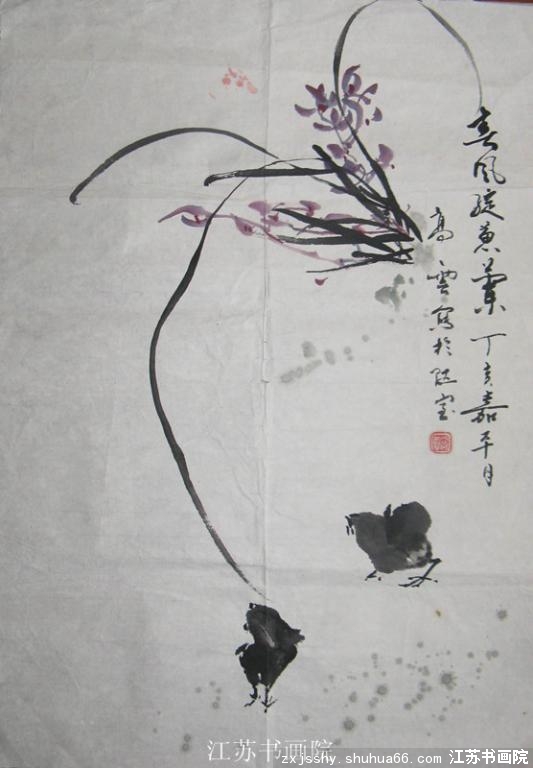 春风绽蕙兰 丁亥嘉平月
高云写於 室
江苏书画院
zxjsshy.shuhua66.com 江苏书画院